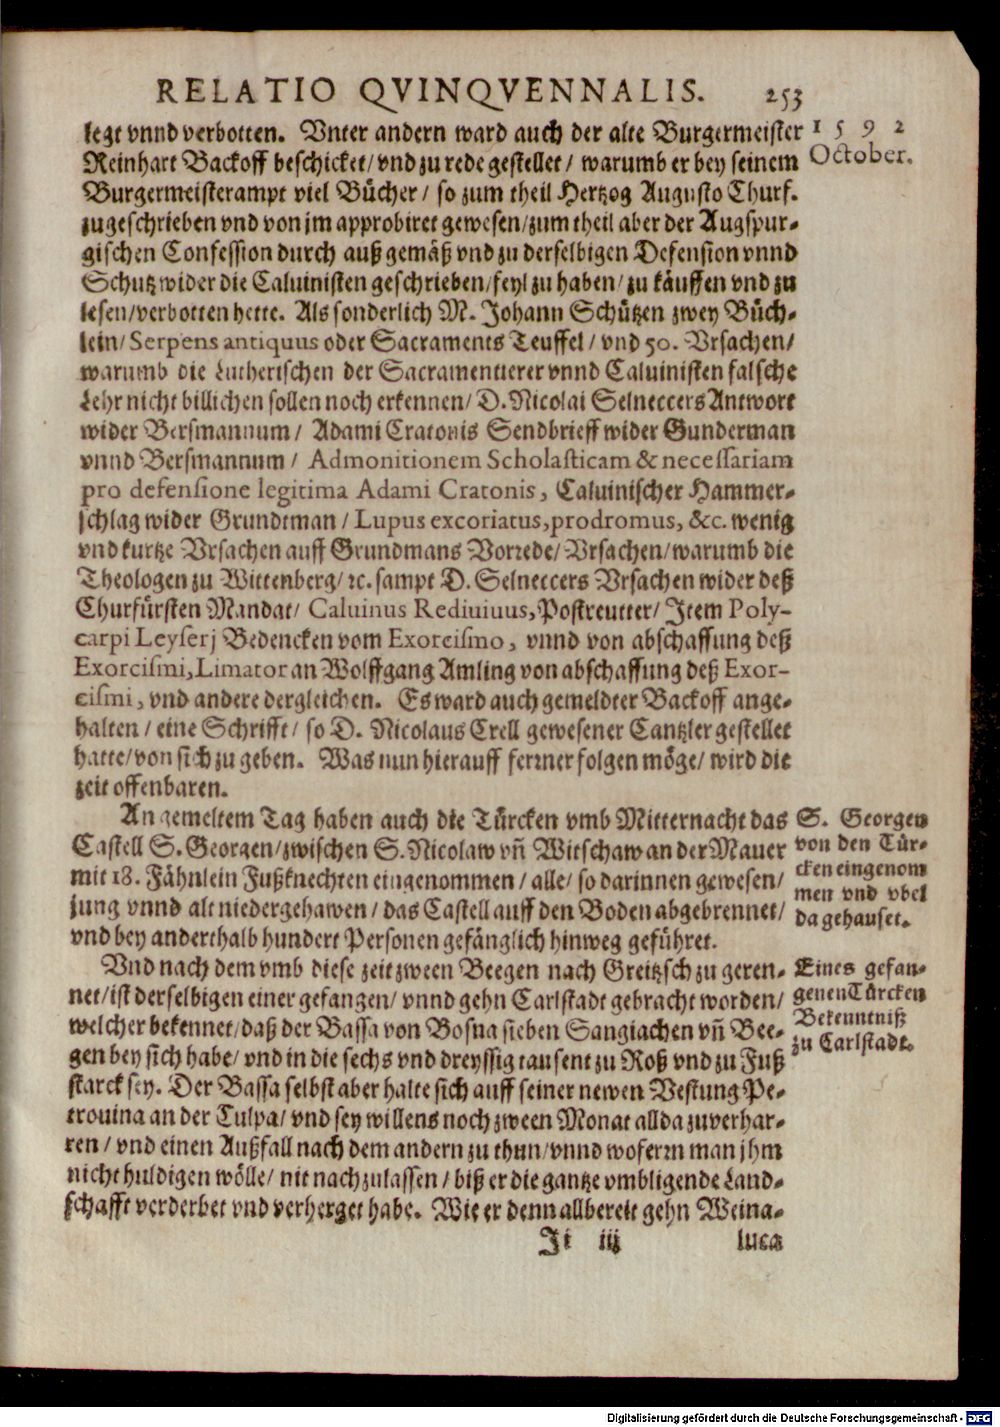 RELATIO QVINQVENNALIS. 253
legt vnnd verbotten. Vnter andern ward auch der alte Burgermeister
1592
October.
Reinhart Backoff beschicket/ vnd zu rede gestellet/ warumb er bey seinem
Burgermeisterampt viel Bücher/ so zum theil Hertzog Augusto Churf.
zugeschrieben vnd von jm approbiret gewesen/ zum theil aber der Augspur-
gischen Confession durch auß gemäß vnd zu derselbigen Defension vnnd
Schutz wider die Caluinisten geschrieben/ feyl zu haben/ zu käuffen vnd zu
lesen/ verbotten hette. Als sonderlich M. Johann Schützen zwey Büch-
lein/ Serpens antiquus oder Sacraments Teuffel/ vnd 50. Vrsachen/
warumb die Lutherischen der Sacramentierer vnnd Caluinisten falsche
Lehr nicht billichen sollen noch erkennen/ D. Nicolai Selneccers Antwort
wider Bersmannum/ Adami Cratonis Sendbrieff wider Gunderman
vnnd Bersmannum/ Admonitionem Scholasticam & necessariam
pro defensione legitima Adami Cratonis, Caluinischer Hammer-
schlag wider Grundtman/ Lupus excoriatus, prodromus, &c. wenig
vnd kurtze Vrsachen auff Grundmans Vorrede/ Vrsachen/ warumb die
Theologen zu Wittenberg/ ꝛc. sampt D. Selneccers Vrsachen wider deß
Churfürsten Mandat/ Caluinus Rediuiuus, Postreutter/ Jtem Poly-
carpi Leyserj Bedencken vom Exorcismo, vnnd von abschaffung deß
Exorcismi, Limator an Wolffgang Amling von abschaffung deß Exor-
cismi, vnd andere dergleichen. Es ward auch gemeldter Backoff ange-
halten/ eine Schrifft/ so D. Nicolaus Crell gewesener Cantzler gestellet
hatte/ von sich zu geben. Was nun hierauff ferrner folgen möge/ wird die
zeit offenbaren.
An gemeltem Tag haben auch die Türcken vmb Mitternacht das
Castell S. Georgen/ zwischen S. Nicolaw vñ Witschaw an der Mauer
mit 18. Fähnlein Fußknechten eingenommen/ alle/ so darinnen gewesen/
jung vnnd alt niedergehawen/ das Castell auff den Boden abgebrennet/
vnd bey anderthalb hundert Personen gefänglich hinweg geführet.
S. Georgen
von den Tür-
cken eingenom
men vnd vbel
da gehauset.
Vnd nach dem vmb diese zeit zween Beegen nach Greitzsch zu geren-
net/ ist derselbigen einer gefangen/ vnnd gehn Carlstadt gebracht worden/
welcher bekennet/ daß der Bassa von Bosna sieben Sangiachen vñ Bee-
gen bey sich habe/ vnd in die sechs vnd dreyssig tausent zu Roß vnd zu Fuß
starck sey. Der Bassa selbst aber halte sich auff seiner newen Vestung Pe-
trouina an der Culpa/ vnd sey willens noch zween Monat allda zuverhar-
ren/ vnd einen Außfall nach dem andern zu thun/ vnnd woferrn man jhm
nicht huldigen wölle/ nit nachzulassen/ biß er die gantze vmbligende Land-
schafft verderbet vnd verherget habe. Wie er denn allbereit gehn Weina-
Eines gefan-
genen Türcken
Bekenntniß
zu Carlstadt.
Ji iij luca
Digitalisierung gefördert durch die Deutsche Forschungsgemeinschaft - DFG